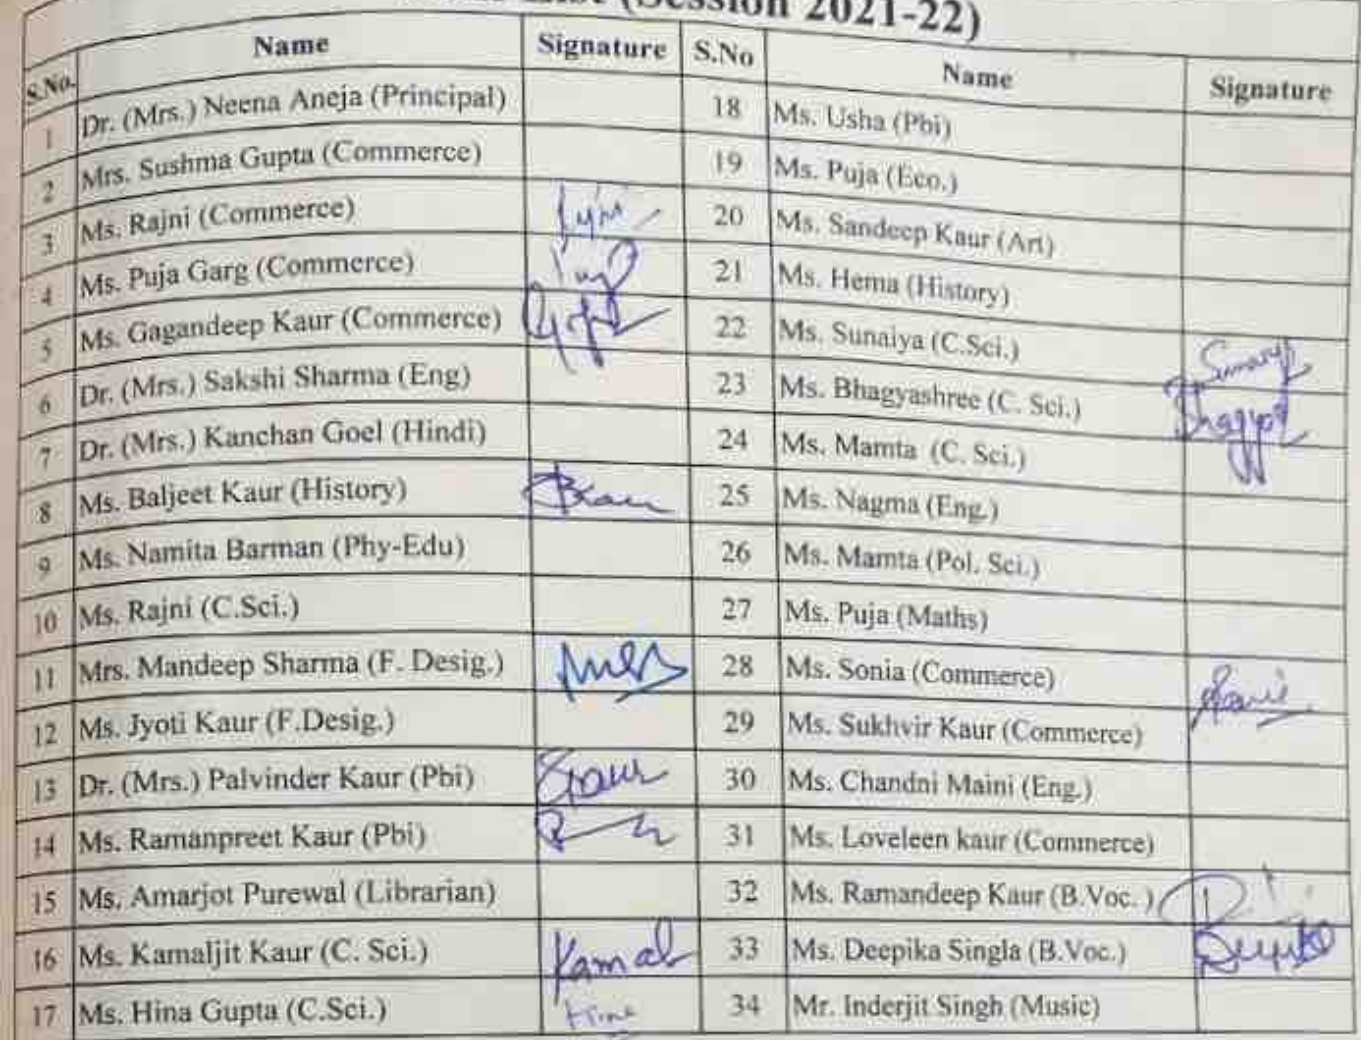 (Session 2021-22)
S.No. Name Signature S.No Name Signature
1 Dr. (Mrs.) Neena Aneja (Principal) 18 Ms. Usha (Pbi)
2 Mrs. Sushma Gupta (Commerce) 19 Ms. Puja (Eco.)
3 Ms. Rajni (Commerce) 20 Ms. Sandeep Kaur (Art)
4 Ms. Puja Garg (Commerce) 21 Ms. Hema (History)
5 Ms. Gagandeep Kaur (Commerce) 22 Ms. Sunaiya (C.Sci.)
6 Dr. (Mrs.) Sakshi Sharma (Eng) 23 Ms. Bhagyashree (C. Sci.)
7 Dr. (Mrs.) Kanchan Goel (Hindi) 24 Ms. Mamta (C. Sci.)
8 Ms. Baljeet Kaur (History) 25 Ms. Nagma (Eng.)
9 Ms. Namita Barman (Phy-Edu) 26 Ms. Mamta (Pol. Sci.)
10 Ms. Rajni (C.Sci.) 27 Ms. Puja (Maths)
11 Mrs. Mandeep Sharma (F. Desig.) 28 Ms. Sonia (Commerce)
12 Ms. Jyoti Kaur (F.Desig.) 29 Ms. Sukhvir Kaur (Commerce)
13 Dr. (Mrs.) Palvinder Kaur (Pbi) 30 Ms. Chandni Maini (Eng.)
14 Ms. Ramanpreet Kaur (Pbi) 31 Ms. Loveleen kaur (Commerce)
15 Ms. Amarjot Purewal (Librarian) 32 Ms. Ramandeep Kaur (B.Voc. )
16 Ms. Kamaljit Kaur (C. Sci.) Kamal 33 Ms. Deepika Singla (B.Voc.)
17 Ms. Hina Gupta (C.Sci.) Hina 34 Mr. Inderjit Singh (Music)